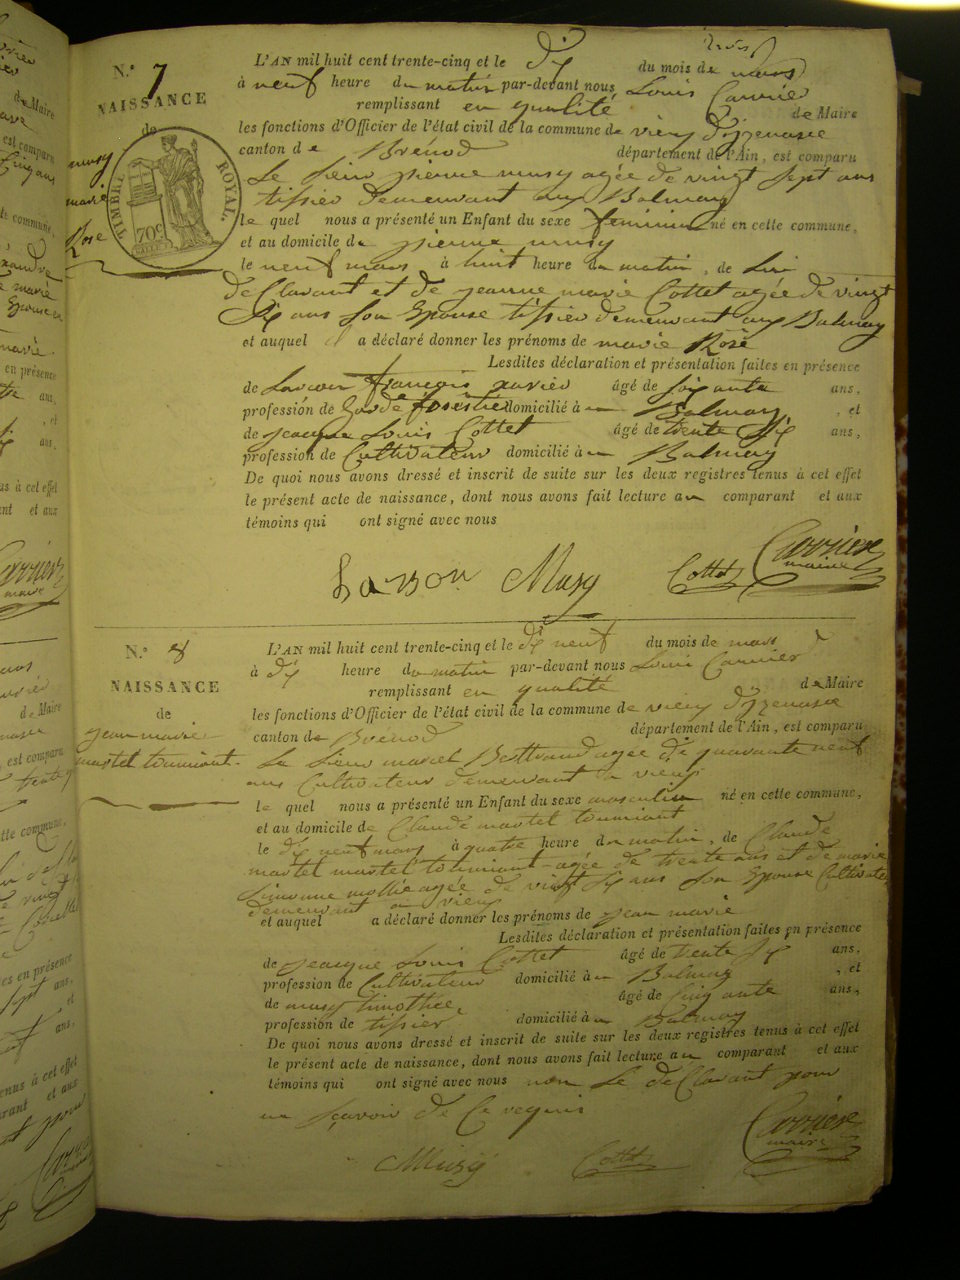 N.° 7
NAISSANCE
de
musy
marie
Rose
TIMBRE ROYAL.
70c
L'AN mil huit cent trente-cinq et le dix du mois de mars
à neuf heure du matin par-devant nous Louis Carrier
remplissant en qualité de Maire
les fonctions d'Officier de l'état civil de la commune de vieu d'izenave
canton de Brénod département de l'Ain, est comparu
Le sieur pierre musy agée de vingt sept ans
tissier demeurant au Balmay
le quel nous a présenté un Enfant du sexe feminin né en cette commune,
et au domicile de pierre musy
le neuf mars à huit heure du matin, de lui
declarant et de jeanne marie Cottet agée de vingt
six ans son Epouse tissier demeurant au Balmay
et auquel il a déclaré donner les prénoms de marie Rose
Lesdites déclaration et présentation faites en présence
de françois xavier âgé de soixante ans,
profession de Garde forestier domicilié à au Balmay, et
de jeacque Louis Cottet âgé de trente six ans,
profession de Cultivateur domicilié à au Balmay
De quoi nous avons dressé et inscrit de suite sur les deux registres tenus à cet effet
le présent acte de naissance, dont nous avons fait lecture au comparant et aux
témoins qui ont signé avec nous
Musy Cottet Carrier
maire
N.° 8
NAISSANCE
de
jean marie
martel tourniant
L'AN mil huit cent trente-cinq et le dix neuf du mois de mars
à dix heure du matin par-devant nous Louis Carrier
remplissant en qualité de Maire
les fonctions d'Officier de l'état civil de la commune de vieu d'izenave
canton de Brénod département de l'Ain, est comparu
Le sieur marcel Bertrand agée de quarante neuf
ans Cultivateur demeurant à vieu
le quel nous a présenté un Enfant du sexe masculin né en cette commune,
et au domicile de Claude martel tourniant
le dix neuf mars à quatre heure du matin, de Claude
martel tourniant agée de trente ans et de marie
agée de vingt six ans son Epouse Cultivateur
demeurant à vieu
et auquel a déclaré donner les prénoms de jean marie
Lesdites déclaration et présentation faites en présence
de jeacque Louis Cottet âgé de trente six ans,
profession de Cultivateur domicilié à au Balmay, et
de musy timothée, âgé de cinquante ans,
profession de tissier domicilié à au Balmay
De quoi nous avons dressé et inscrit de suite sur les deux registres tenus à cet effet
le présent acte de naissance, dont nous avons fait lecture au comparant et aux
témoins qui ont signé avec nous non le declarant pour
ne sçavoir de ce requis
Musy Cottet Carrier
maire